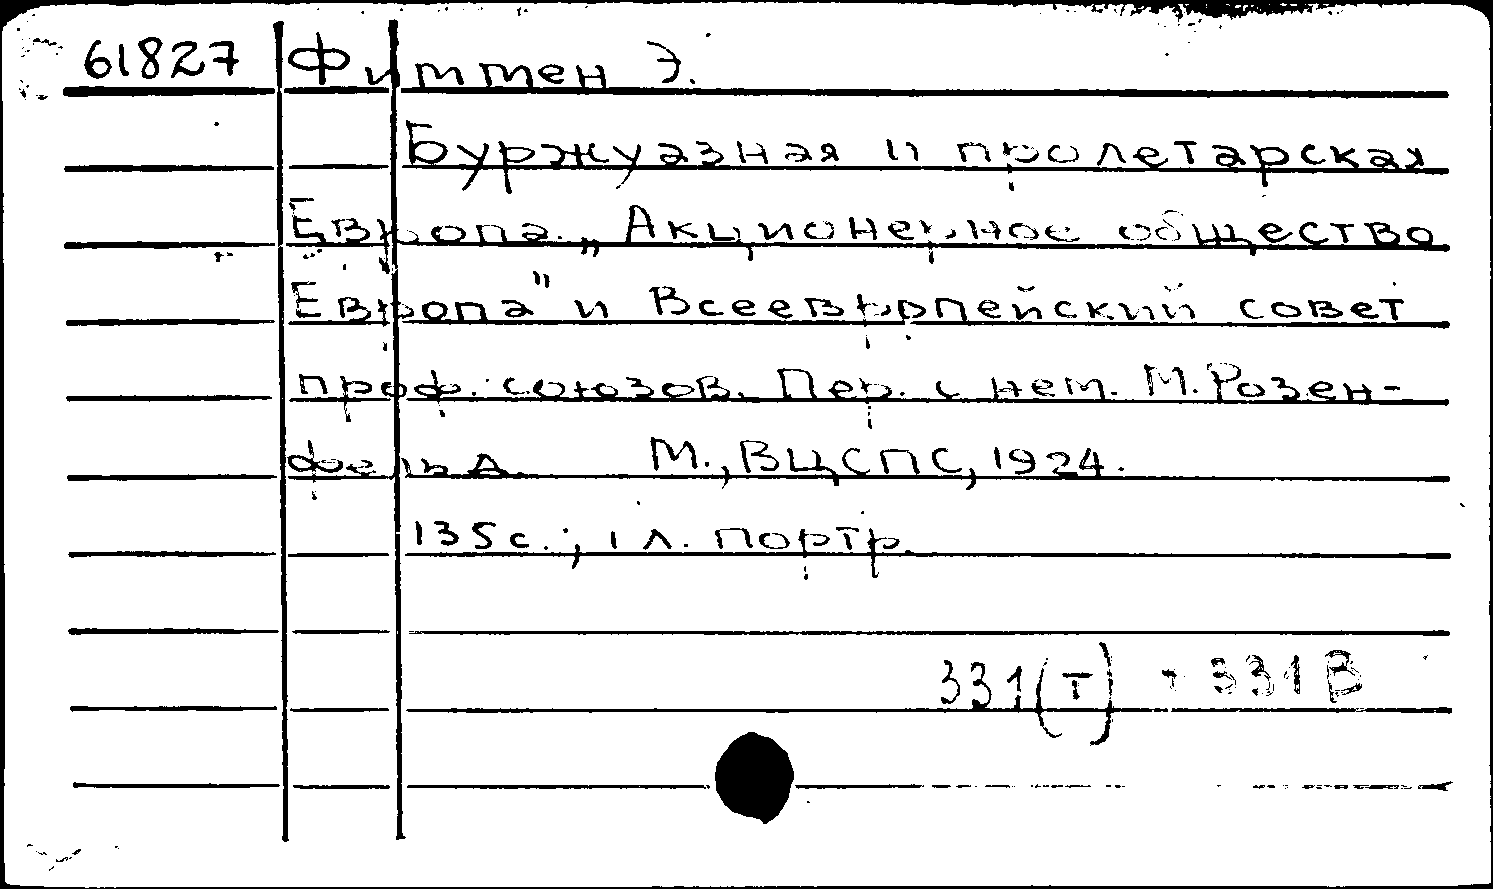 61827 Фиттен Э.
Буржуазная и пролетарская
Европа. „Акционерное общество
Европа" и Всеевропейский совет
проф. союзов. Пер. с нем. М. Розен-
фельд. М., ВЦСПС, 1924.
135 с.; 1 л. портр.
331(Т) + 331В